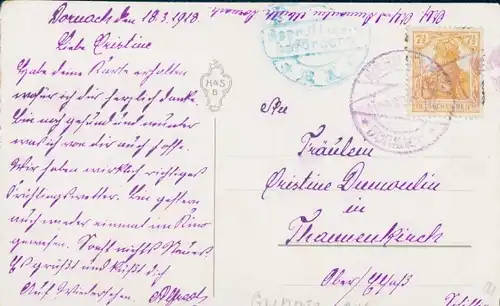 Dornach den 18.3.1918
Liebe Cristine
Habe deine Karte erhalten
wofür ich dir herzlich danke.
Bin noch gesund und munter
was ich von dir auch hoffe.
Wir haben wirklich richtiges
Frühlingswetter. Bin gestern
auch wieder einmal im Kino
gewesen. Sonst nichts Neues
Es grüßt und küßt dich
Auf Wiedersehen.
H&S
B
7½ 7½
DEUTSCHES REICH
An
Fräulein
Cristine Dumoulin
in
Thannenkirch
Ober Elsaß